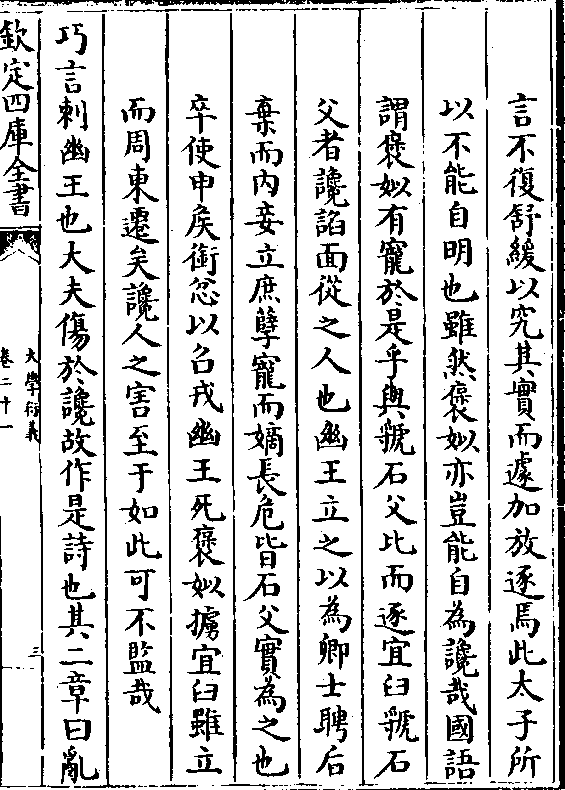 言不復舒緩以究其實而遽加放逐焉此太子所
以不能自明也雖然褒姒亦豈能自為讒哉國語
謂褒姒有寵於是乎與虢石父比而逐宜臼虢石
父者讒諂面從之人也幽王立之以為卿士聘后
棄而內妾立庶孽寵而嫡長危皆石父實為之也
卒使申侯銜忿以召戎幽王死褒姒擄宜臼雖立
而周東遷矣讒人之害至于如此可不監哉
巧言刺幽王也大夫傷於讒故作是詩也其二章曰亂
欽定四庫全書
大學衍義
卷二十一
三